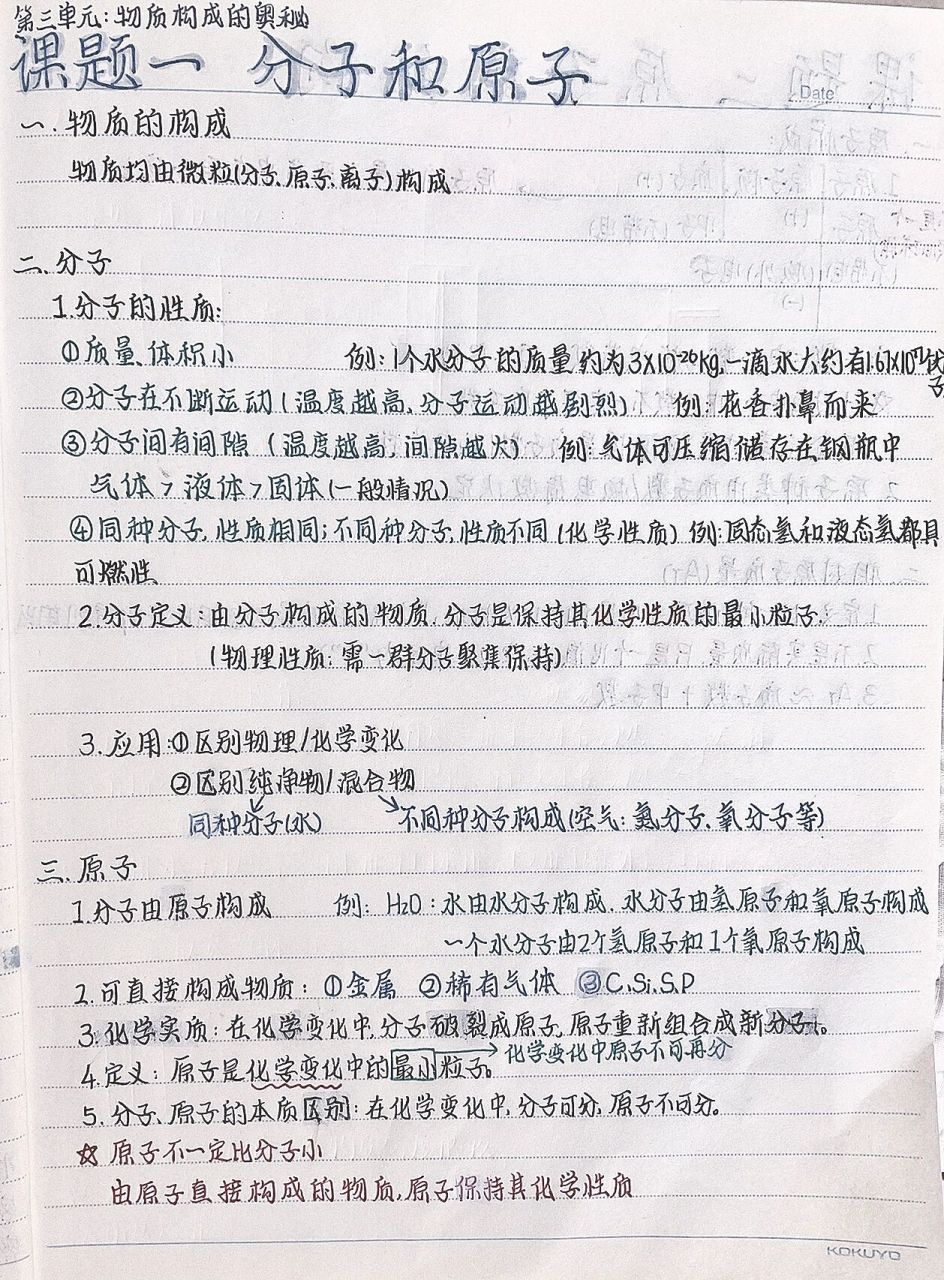 第三单元:物质构成的奥秘
课题一 分子和原子
Date
一.物质的构成
物质均由微粒(分子.原子.离子)构成
二.分子
1.分子的性质:
①质量.体积小 例:1个水分子的质量约为3×10⁻²⁶kg,一滴水大约有1.67×10²¹
子
②分子在不断运动(温度越高.分子运动越剧烈) 例:花香扑鼻而来
③分子间有间隙(温度越高,间隙越大) 例:气体可压缩储存在钢瓶中
气体>液体>固体(一般情况)
④同种分子.性质相同;不同种分子.性质不同(化学性质) 例:固态氢和液态氢都具
可燃性
2.分子定义:由分子构成的物质.分子是保持其化学性质的最小粒子.
(物理性质:需一群分子聚集保持)
3.应用:①区别物理/化学变化
②区别纯净物/混合物
同种分子(水) 不同种分子构成(空气:氮分子.氧分子等)
三.原子
1.分子由原子构成 例:H₂O:水由水分子构成.水分子由氢原子和氧原子构成
一个水分子由2个氢原子和1个氧原子构成
2.可直接构成物质:①金属 ②稀有气体 ③C.Si.S.P
3.化学实质:在化学变化中,分子破裂成原子.原子重新组合成新分子。
化学变化中原子不可再分
4.定义:原子是化学变化中的最小粒子。
5.分子、原子的本质区别:在化学变化中,分子可分,原子不可分。
☆ 原子不一定比分子小
由原子直接构成的物质,原子保持其化学性质
KOKUYO